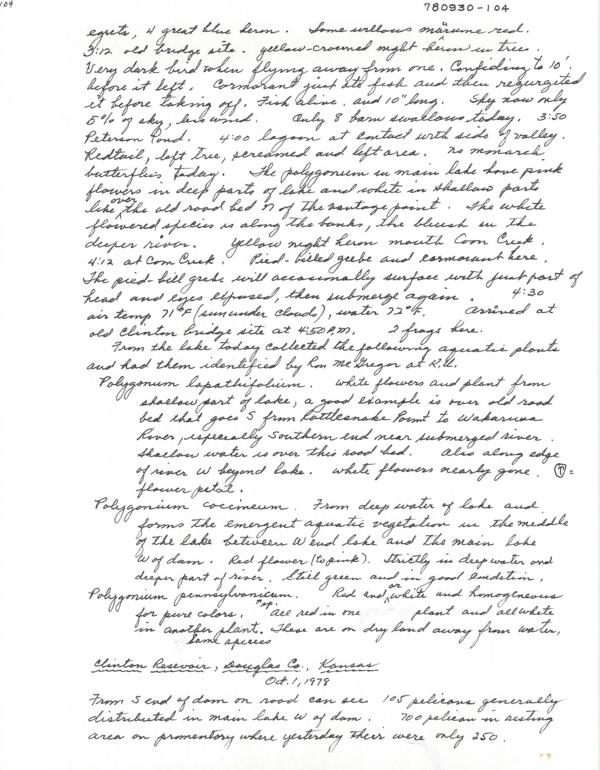 104
780930-104
egrets, 4 great blue heron. Some willows marume red.
3:12 old bridge site. yellow-crowned night heron in tree.
Very dark bird when flying away from one. Confiding to 10'
before it left. Cormorant just ate fish and then regurgited
it before taking off. Fish alive. and 10" long. Sky now only
5% of sky, no wind. Only 8 barn swallows today. 3:50
Peterson Pond. 4:00 lagoon at contact with side of valley.
Redtail, left tree, screamed and left area. no monarch
butterflies today. The polygonium in main lake have pink
flowers in deep parts of lake and white in shallow parts
like over the old road bed N of the vantage point. The white
flowered species is along the banks, the blush in the
deeper river. Yellow night heron mouth Coon Creek.
4:12 at Coon Creek. Pied-billed grebe and cormorant here.
The pied-bill grebe will occasionally surface with just part of
head and eyes exposed, then submerge again. 4:30
air temp 71°F (sun under clouds), water 72°F. arrived at
old Clinton bridge site at 4:50 P.M. 2 frogs here.
From the lake today collected the following aquatic plants
and had them identified by Ron McGregor at K.U.
Polygonum lapathifolium. White flowers and plant from
shallow part of lake, a good example is over old road
bed that goes S from Rattlesnake Point to Wakarusa
River, especially Southern end near submerged river.
Shallow water is over this road bed. Also along edge
of river W beyond lake. White flowers nearly gone. =
flower petal.
Polygonium coccineum. From deep water of lake and
forms the emergent aquatic vegetation in the middle
of the lake between W end lake and the main lake
W of dam. Red flower (to pink). Strictly in deep water and
deeper part of river. Still green and in good condition.
Polygonium pennsylvanicum. Red and or white and homogeneous
for pure colors. sp. all red in one plant and all white
in another plant. These are on dry land away from water,
same species
Clinton Resevoir, Douglas Co., Kansas
Oct. 1, 1978
From S end of dam on road can see 105 pelicans generally
distributed in main lake W of dam. 700 pelican in resting
area on promentory where yesterday their were only 250.